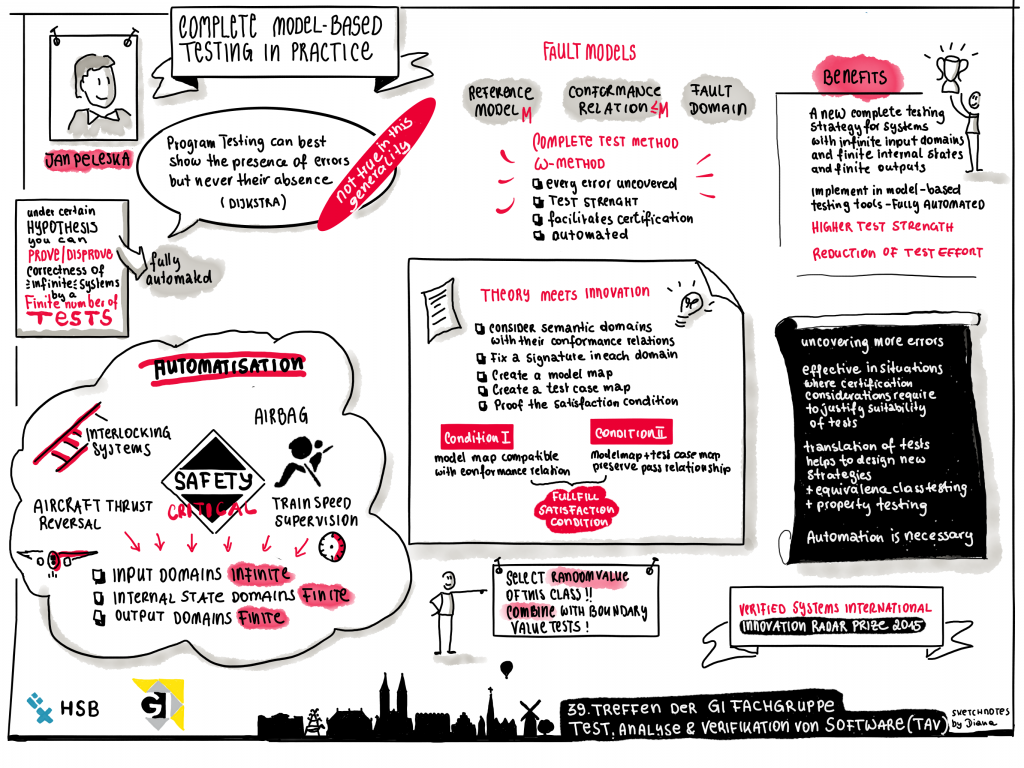 COMPLETE MODEL-BASED
TESTING IN PRACTICE
JAN PELESKA
Program Testing can best
show the presence of errors
but never their absence
(DIJKSTRA)
not true in this
generality
under certain
HYPOTHESIS
you can
PROVE/DISPROVE
correctness of
infinite systems
by a
Finite number of
TESTS
fully
automated
FAULT MODELS
REFERENCE
MODEL M
CONFORMANCE
RELATION ≤M
FAULT
DOMAIN
COMPLETE TEST METHOD
W-METHOD
every error uncovered
TEST STRENGHT
facilitates certification
automated
BENEFITS
A new complete testing
strategy for systems
with infinite input domains
and finite internal states
and finite outputs
implement in model-based
testing tools - Fully AUTOMATED
HIGHER TEST STRENGTH
REDUCTION OF TEST EFFORT
THEORY MEETS INNOVATION
CONSIDER SEMANTIC DOMAINS
with their conformance relations
Fix a signature in each domain
Create a model map
Create a test case map
Proof the satisfaction condition
Condition I
model map compatible
with conformance relation
Condition II
Modelmap + test case map
preserve pass relationship
FULLFILL
SATISFACTION
CONDITION
uncovering more errors
effective in situations
where certification
considerations require
to justify suitability
of tests
translation of tests
helps to design new
strategies
+ equivalena class testing
+ property testing
Automation is necessary
AUTOMATISATION
INTERLOCKING
SYSTEMS
AIRBAG
SAFETY
CRITICAL
AIRCRAFT THRUST
REVERSAL
TRAIN SPEED
SUPERVISION
INPUT DOMAINS INFINITE
INTERNAL STATE DOMAINS FINITE
OUTPUT DOMAINS FINITE
SELECT RANDOM VALUE
OF THIS CLASS!!
COMBINE WITH BOUNDARY
VALUE TESTS!
VERIFIED SYSTEMS INTERNATIONAL
INNOVATION RADAR PRIZE 2015
HSB
GI
39. TREFFEN DER GI FACHGRUPPE
TEST, ANALYSE & VERIFIKATION VON SOFTWARE (TAV)
SKETCHNOTES
by Diana